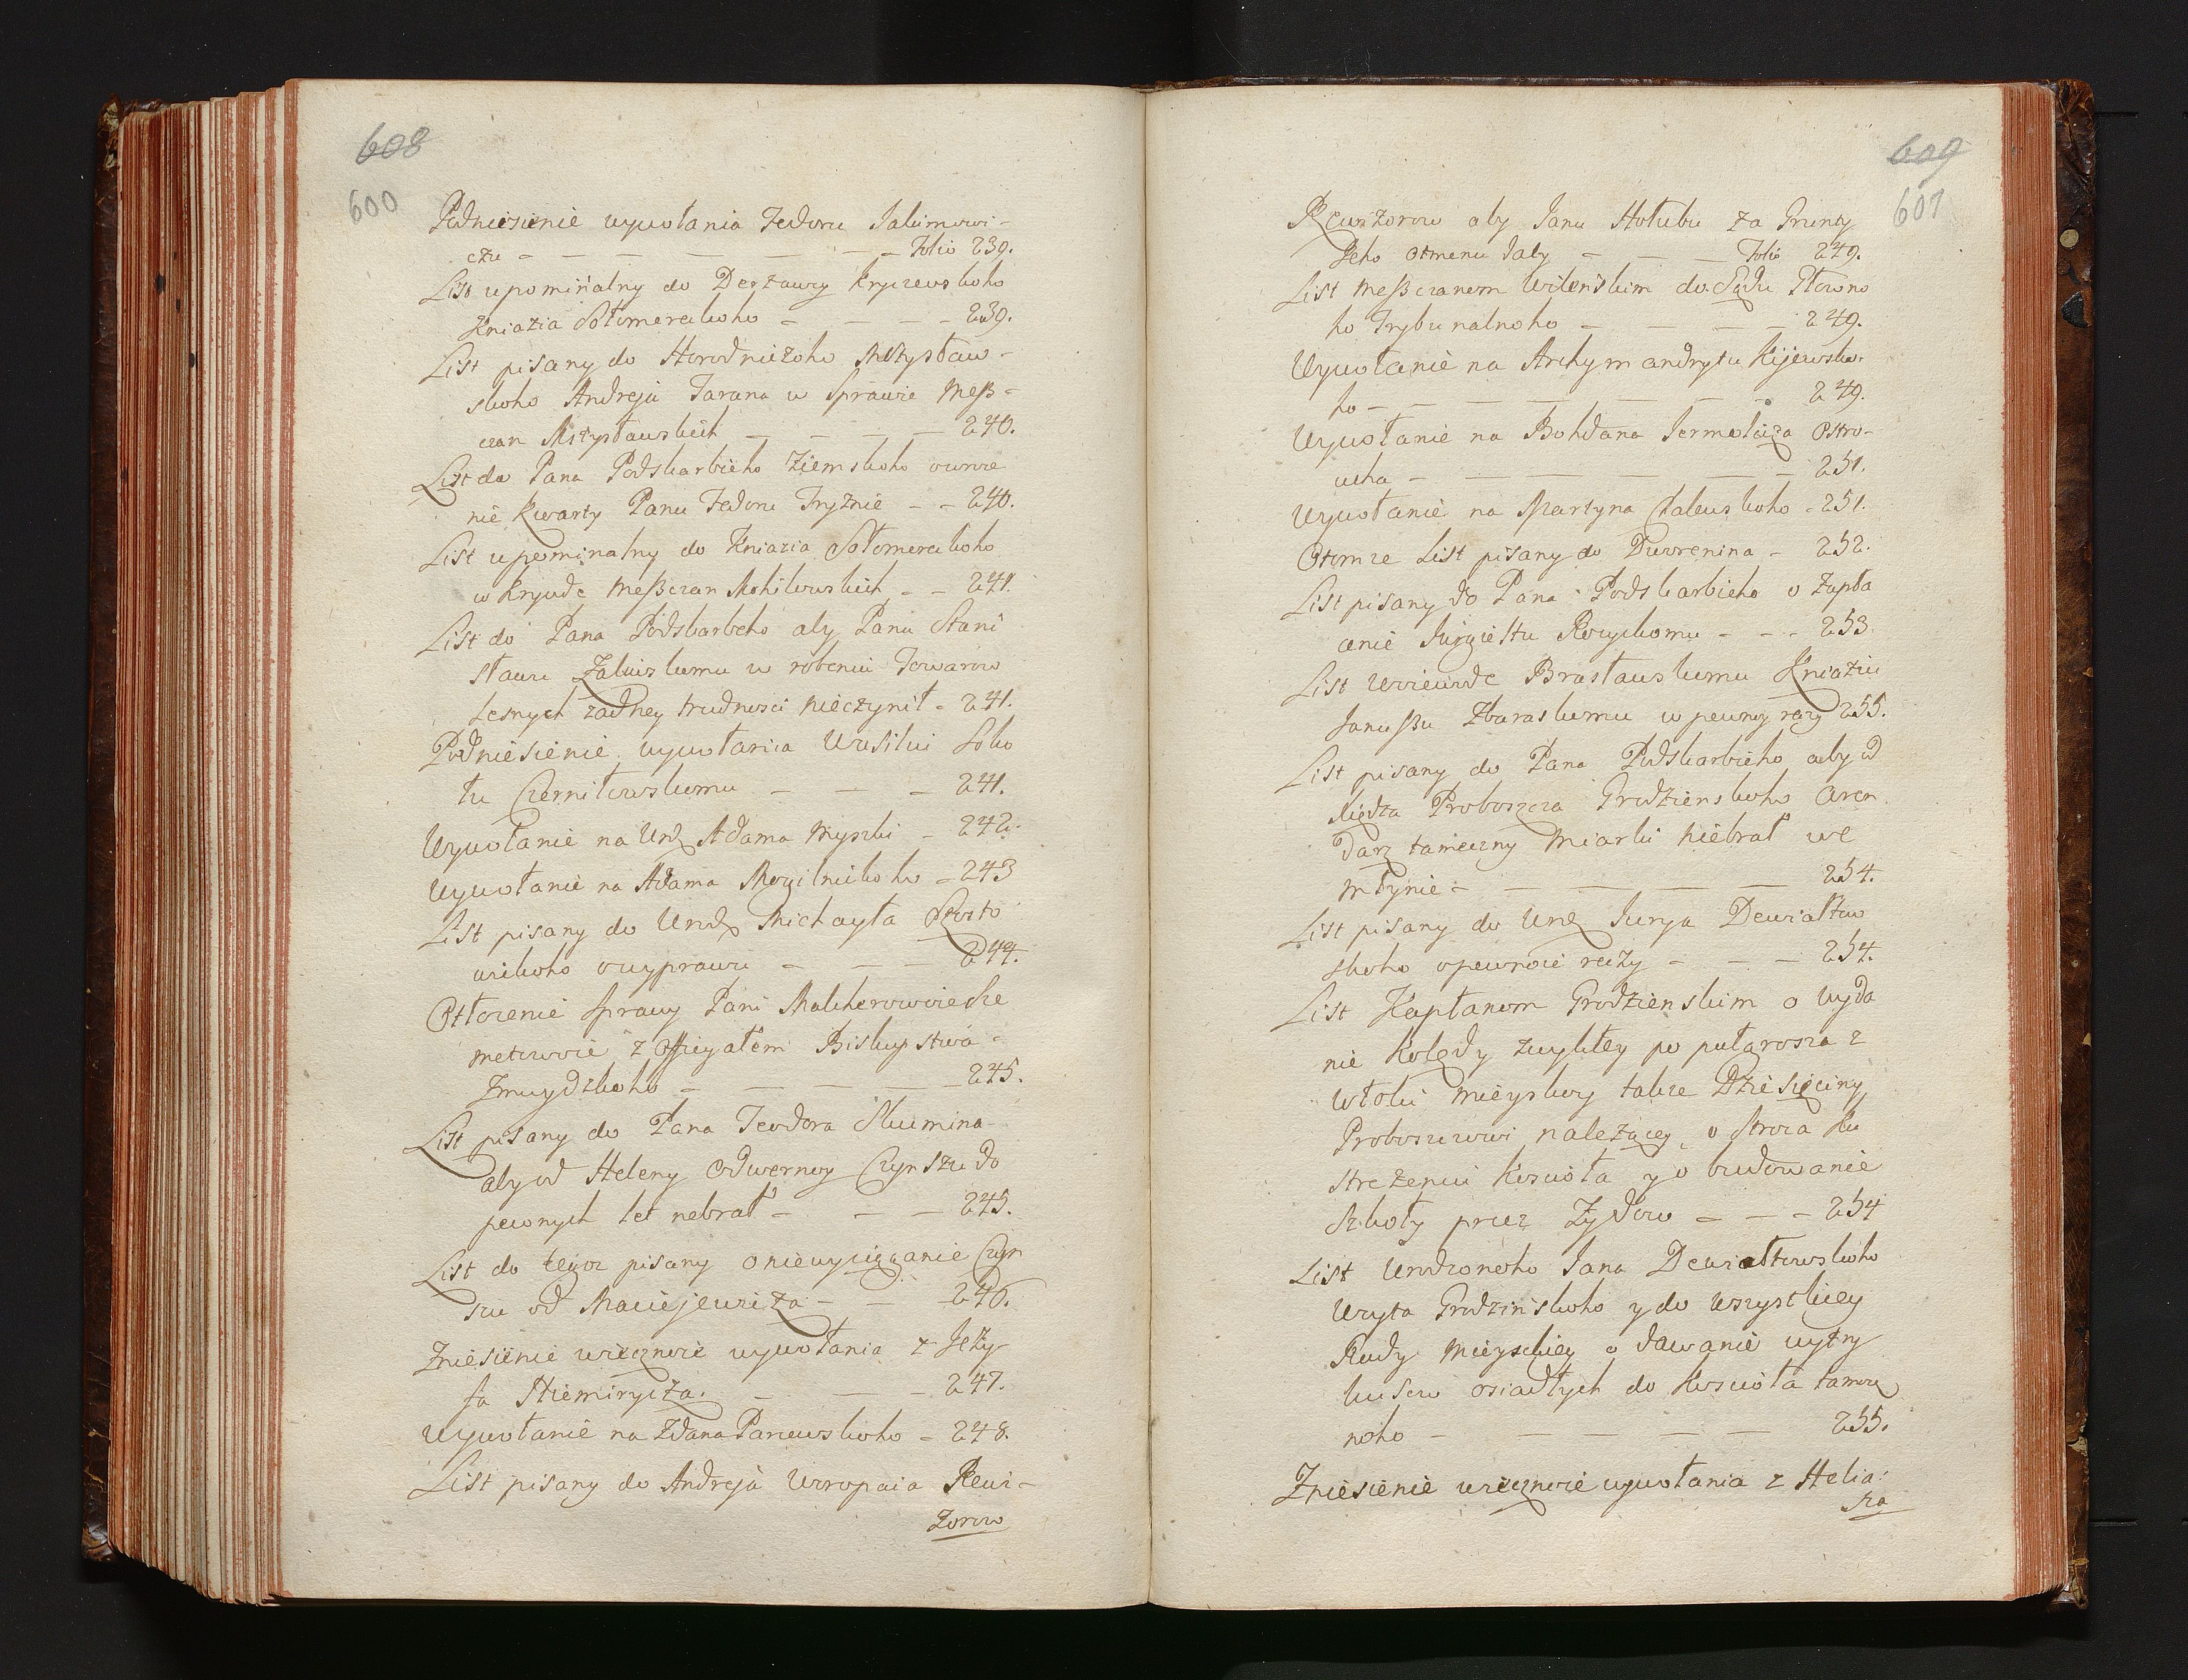 608
600
Podniesienie wywołania Fedoru Jakimowi-
czu - - - - - - Folio 239.
List upominalny do Derżawcy Kryczewskoho
Kniazia Sołomereckoho - - - 239.
List pisany do Horodniczoho Mstysław-
skoho Andreja Tarana w Sprawie Meß-
czan Mstysławskich - - - - 240.
List do Pana Podskarbieho Ziemskoho
nie kwarty Panu Fedoru Tryźnie - - 240.
List upominalny do Kniazia Sołomereckoho
w Krywde Meßczan Mohilowskich - - 241.
List do Pana Podskarbeho aby Panu Stani
sławu w robeniu Towarow
Lesnych żadney trudnosci nieczynił - 241.
Podniesienie wywołania Wasilui Soko
łu Czerniłowskomu - - - 241.
Wywołanie na Urz Adama Myszki - 242.
Wywołanie na Adama Mogilnickoho - 243
List pisany do Urodz Michayła
wickoho owyprawu - - - 244.
Otłożenie Sprawy Pani Malcherowoie Sze
metowoie z Offieyałem Biskupstwa -
Żmuydzkoho - - - - 245.
List pisany do Pana Teodora Skumina
aby od Heleny Odwernoy Czynszu do
pewnych let nebrał - - - 245.
List do tegoż pisany oniewyciąganie Czyn
szu od Maciejewicza - - - 246.
Zniesienie wiecznoie wywołania z Jozy-
fa Niemirycza. - - - 247.
Wywołanie na Zdana Paniewskoho - 248.
List pisany do Andreja Woropaia Rewi-
zorow
609
601
Rewizorow aby Janu Hołubu za Grunty
Jeho otmenu Daly - - - Folio 249.
List Meßczanem Wilenskim do Sądu Hłowno
ho Trybunalnoho - - - - 249.
Wywołanie na Archymandrytu Kijewsko-
ho - - - - - - 249.
Wywołanie na Bohdana Jermolicza Ostro-
ucha - - - - - - 251.
Wywołanie na Martyna Chalewskoho - 251.
Otomze List pisany do Dworenina - 252.
List pisany do Pana Podskarbieho o Zapła
cenie Jurgieltu - - - 253
List Woiewode Brasławskomu Kniaziu
Janußu Zbaraskomu w pewnoy reczy 255.
List pisany do Pana Podskarbieho aby od
Xiędza Proboszcza Grodzienskoho Aren
darz tameczny Miarki niebrał we
Młynie - - - - - 254.
List pisany do Urodz Jurya Dewiałtow
skoho opewnoie reczy - - - 254.
List Kapłanom Grodzienskim o Wyda
nie Kolędy zwykłey po pułgrosza z
Włoki Mieyskoy także Dziesięciny
Proboszczowi należącey, o stroża ku
strzeżeniu Koscioła y o budowanie
Szkoły przez Żydow - - - 254
List Urodzonoho Jana Dewiałtowskoho
Woyta Grodzinskoho y do Wszystkiey
Rady Mieyskiey o dawanie wytry
kusow osiadłych do Kosciola tamecz
noho - - - - - 255.
Zniesienie wiecznoie wywołania z Helia-
sza